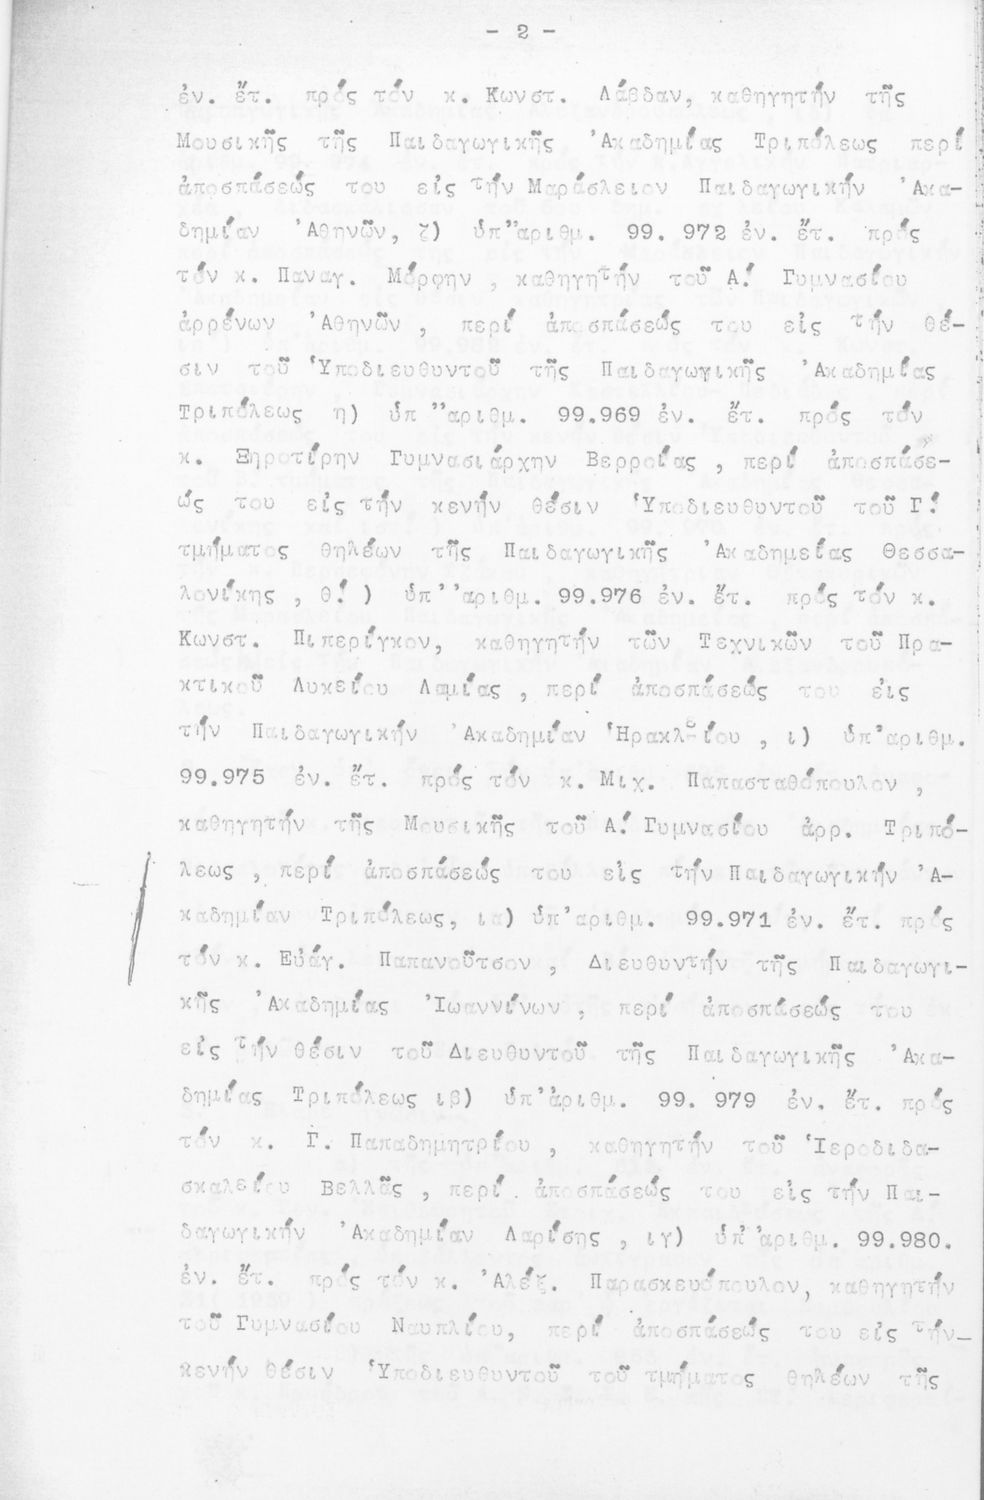 - 2 -
ἐν. ἔτ. πρός τόν κ. Κωνστ. Λάβδαν, καθηγητήν τῆς
Μουσικῆς τῆς Παιδαγωγικῆς Ἀκαδημίας Τριπόλεως περί
ἀποσπάσεώς του εἰς τήν Μαράσλειον Παιδαγωγικήν Ἀκα-
δημίαν Ἀθηνῶν, ζ) ὑπ’ἀριθμ. 99. 972 ἐν. ἔτ. πρός
τόν κ. Παναγ. Μόρφην , καθηγητήν τοῦ Α! Γυμνασίου
ἀρρένων Ἀθηνῶν , περί ἀποσπάσεώς του εἰς τήν θέ-
σιν τοῦ Ὑποδιευθυντοῦ τῆς Παιδαγωγικῆς Ἀκαδημίας
Τριπόλεως η) ὑπ ’’αριθμ. 99.969 ἐν. ἔτ. πρός τόν
κ. Ξηροτίρην Γυμνασιάρχην Βερροίας , περί ἀποσπάσε-
ώς του εἰς τήν κενήν θέσιν Ὑποδιευθυντοῦ τοῦ Γ!
τμήματος θηλέων τῆς Παιδαγωγικῆς Ἀκαδημείας Θεσσα-
λονίκης , θ! ) ὑπ’’αριθμ. 99.976 ἐν. ἔτ. πρός τόν κ.
Κωνστ. Πιπερίγκον, καθηγητήν τῶν Τεχνικῶν τοῦ Πρα-
κτικοῦ Λυκείου Λαμίας , περί ἀποσπάσεώς του εἰς
τήν Παιδαγωγικήν Ἀκαδημίαν Ἡρακλείου , ι) ὑπ’αριθμ.
99.975 ἐν. ἔτ. πρός τόν κ. Μιχ. Παπασταθόπουλον ,
καθηγητήν τῆς Μουσικῆς τοῦ Α! Γυμνασίου ἀρρ. Τριπό-
λεως , περί ἀποσπάσεώς του εἰς τήν Παιδαγωγικήν Ἀ-
καδημίαν Τριπόλεως, ια) ὑπ’αριθμ. 99.971 ἐν. ἔτ. πρός
τόν κ. Εὐάγ. Παπανοῦτσον , Διευθυντήν τῆς Παιδαγωγι-
κῆς Ἀκαδημίας Ἰωαννίνων , περί ἀποσπάσεώς του
εἰς τήν θέσιν τοῦ Διευθυντοῦ τῆς Παιδαγωγικῆς Ἀκα-
δημίας Τριπόλεως ιβ) ὑπ’ἀριθμ. 99. 979 ἐν. ἔτ. πρός
τόν κ. Γ. Παπαδημητρίου , καθηγητήν τοῦ Ἱεροδιδα-
σκαλείου Βελλᾶς , περί ἀποσπάσεώς του εἰς τήν Παι-
δαγωγικήν Ἀκαδημίαν Λαρίσης , ιγ) ὑπ’ἀριθμ. 99.980.
ἐν. ἔτ. πρός τόν κ. Ἀλέξ. Παρασκευόπουλον, καθηγητήν
τοῦ Γυμνασίου Ναυπλίου, περί ἀποσπάσεώς του εἰς τήν_
κενήν θέσιν Ὑποδιευθυντοῦ τοῦ τμήματος θηλέων τῆς